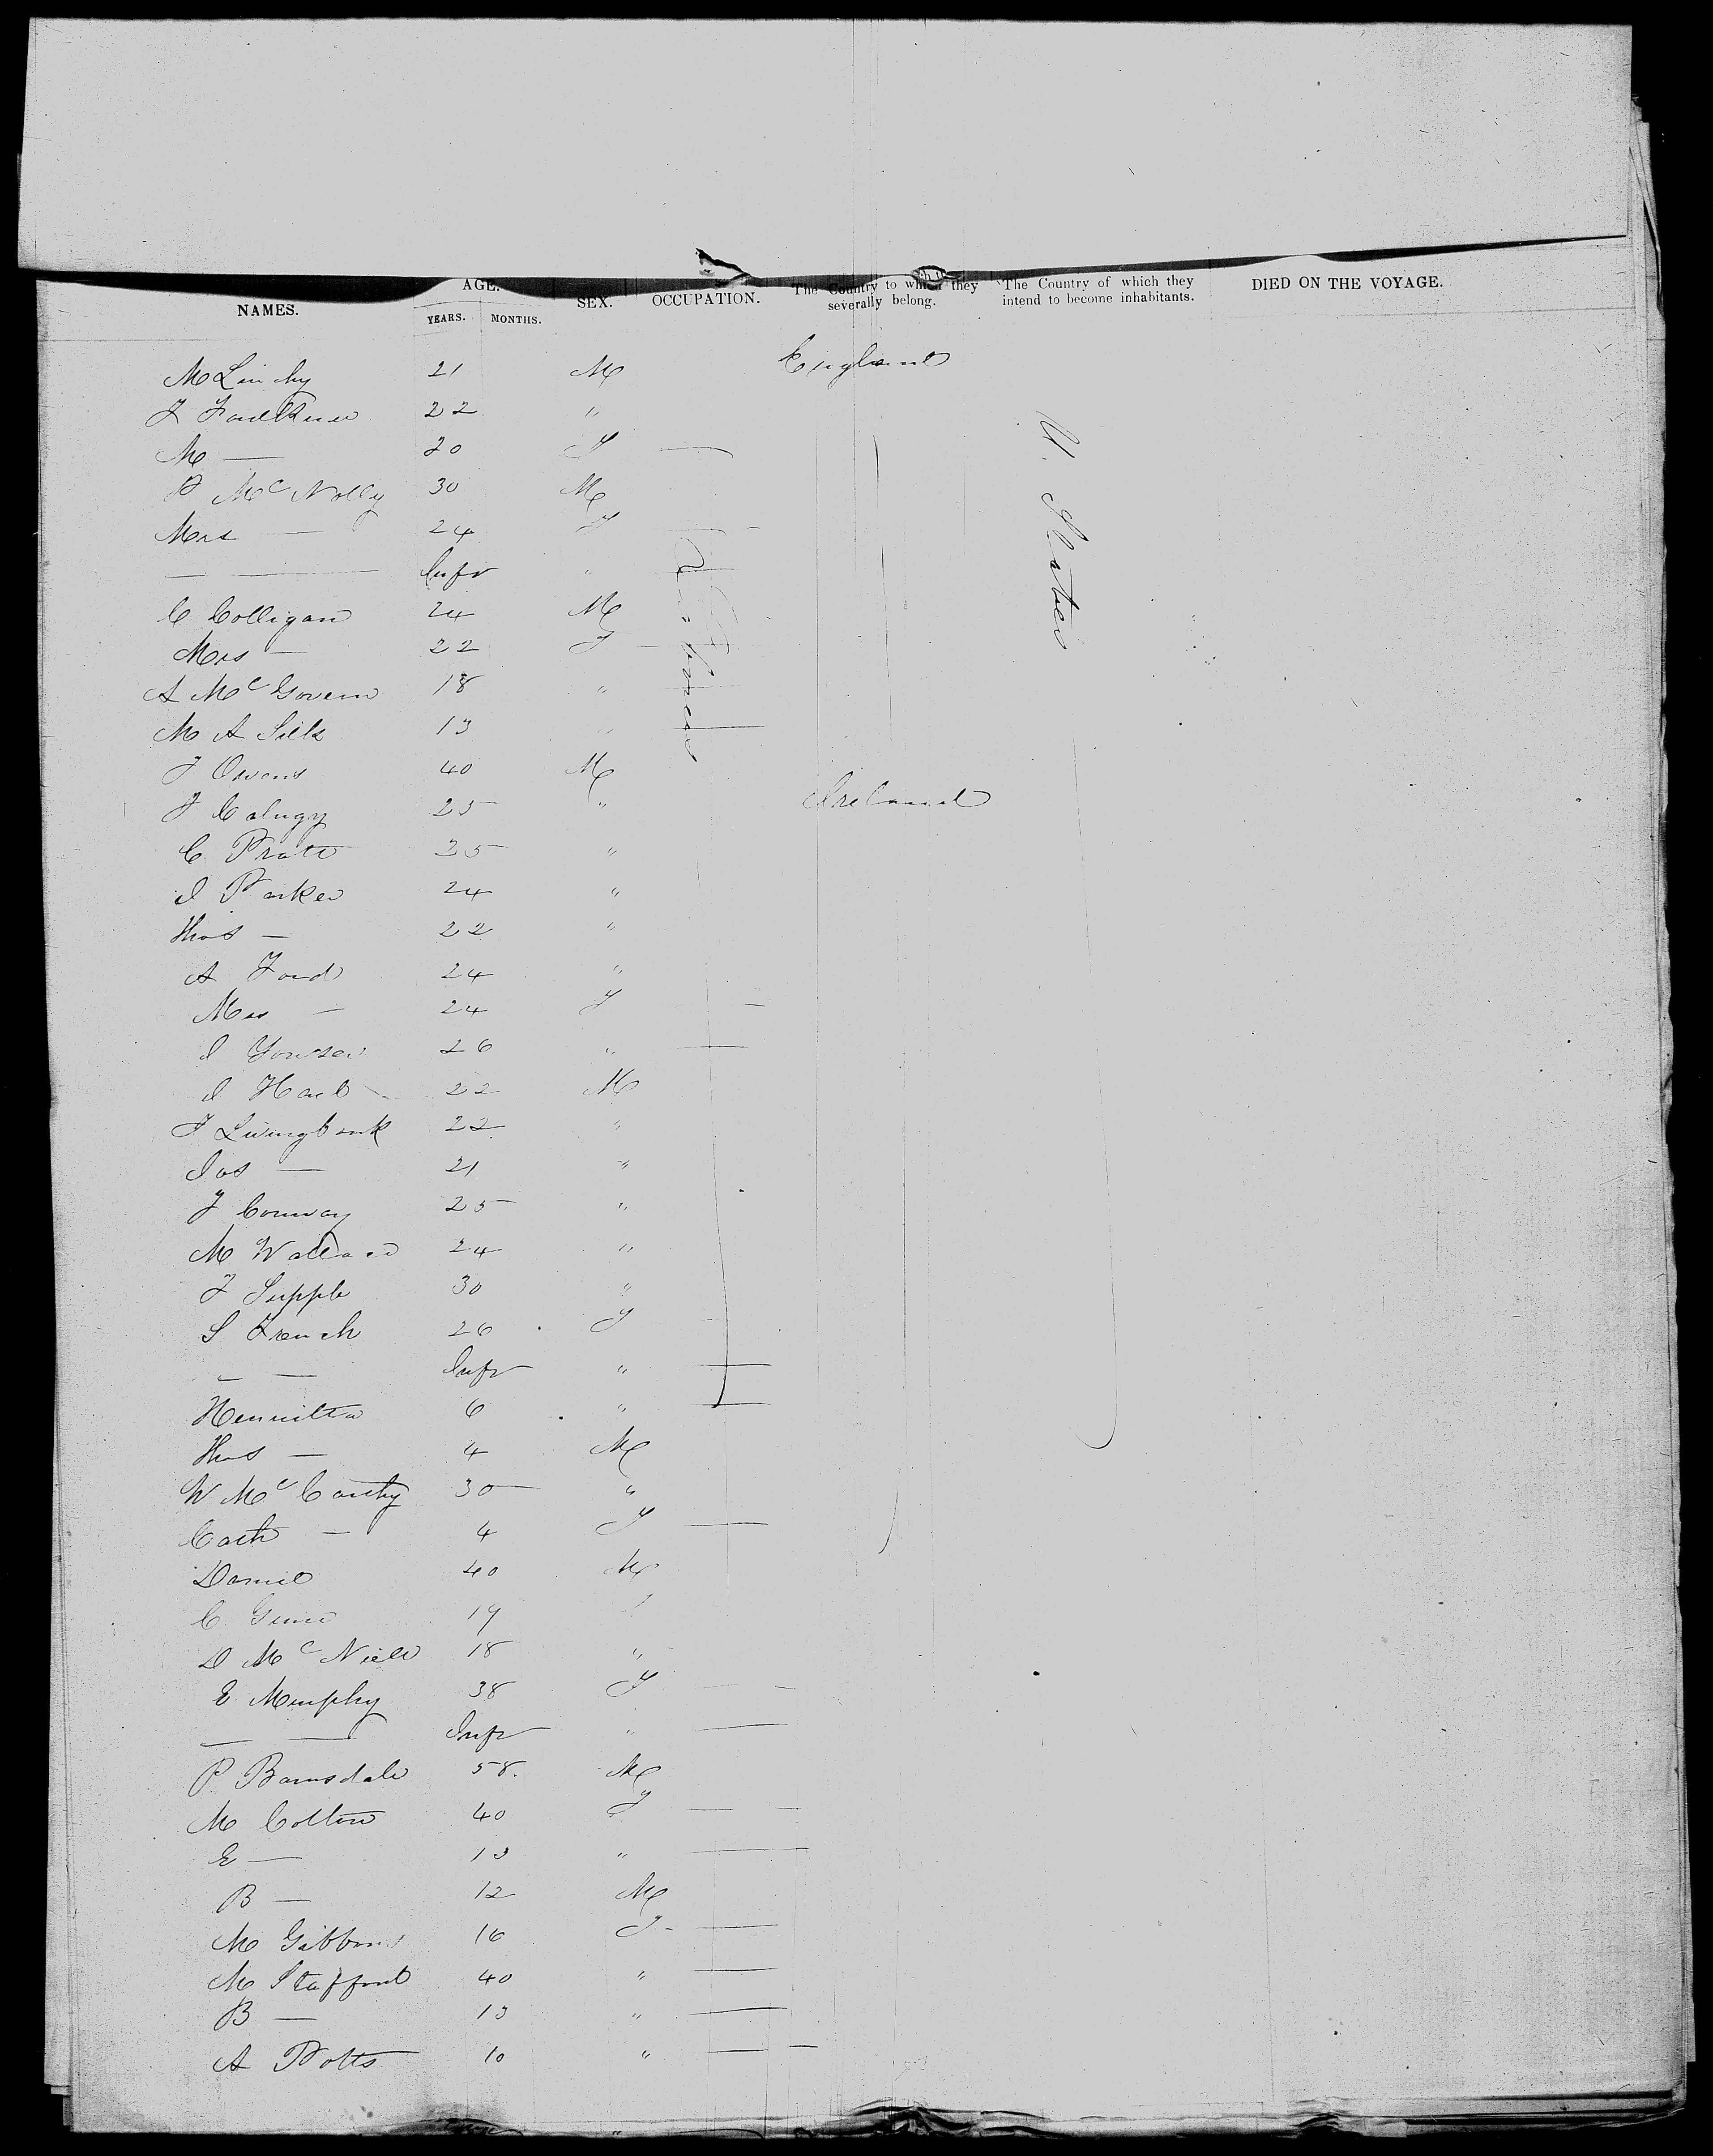 NAMES. AGE. YEARS. MONTHS. SEX. OCCUPATION. The Country to which they severally belong. The Country of which they intend to become inhabitants. DIED ON THE VOYAGE.
M Linchy 21 M England
J Faulkner 22 "
M — 20 F —
P McNolly 30 M
Mrs — 24 F
— — Inft "
C Colligan 24 M
Mrs — 22 F
A McGovern 18 "
M A Silk 13 "
J Owens 40 M
J 25 " Ireland
C Pratt 25 "
J Parker 24 "
Thos — 22 "
A Ford 24 "
Mrs — 24 F —
J 26 " —
J 22 M
J Livingbank 22 "
Jas — 21 "
J Conway 25 "
M Wallace 24 "
J Supple 30 "
S French 26 F
— — Inft " —
Henrietta 6 " —
Thos — 4 M
W McCarthy 30 "
Cath — 4 F —
Daniel 40 M
C 19
D McNiell 18 "
E Murphy 38 F — —
— — Inft " —
P. Barnsdale 58. M
M Colton 40 F — —
E — 13 " —
B — 12 M
M Gibbons 16 F —
M Stafford 40 " —
B — 13 " —
A Potts 10 " — —
Labourers
U. States